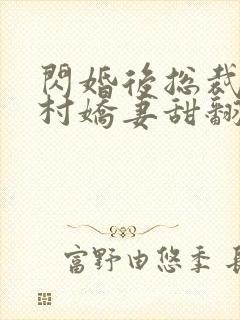 閃婚後總裁
村嬌妻甜翻
富野由悠季